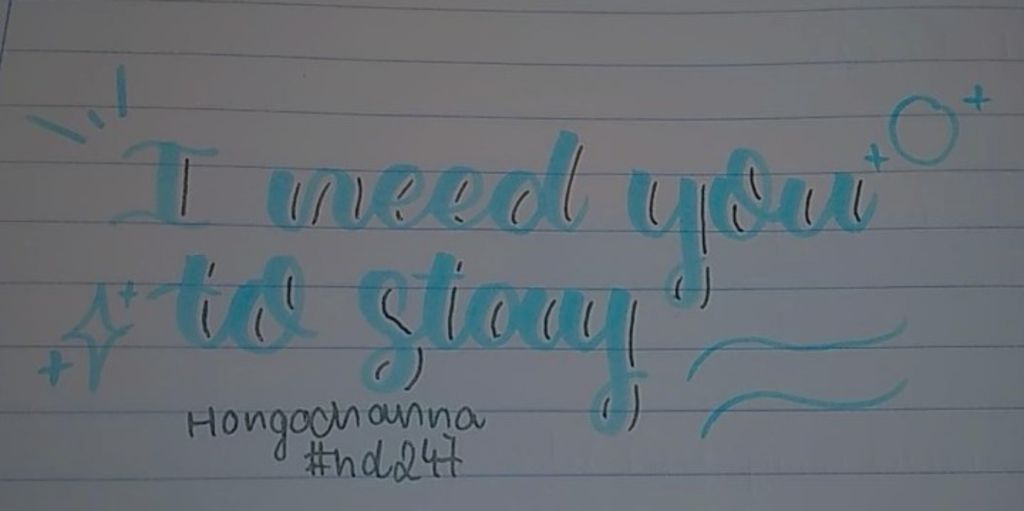 I need you
to stay
Hongochanna
#hd247